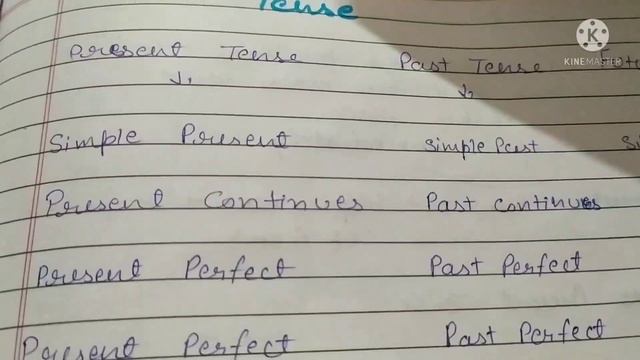 Tense
Present Tense Past Tense
↓1 ↓2
Simple Present Simple Past
Present Continues Past continues
Present Perfect Past Perfect
Present Perfect Past Perfect
KINEMASTER